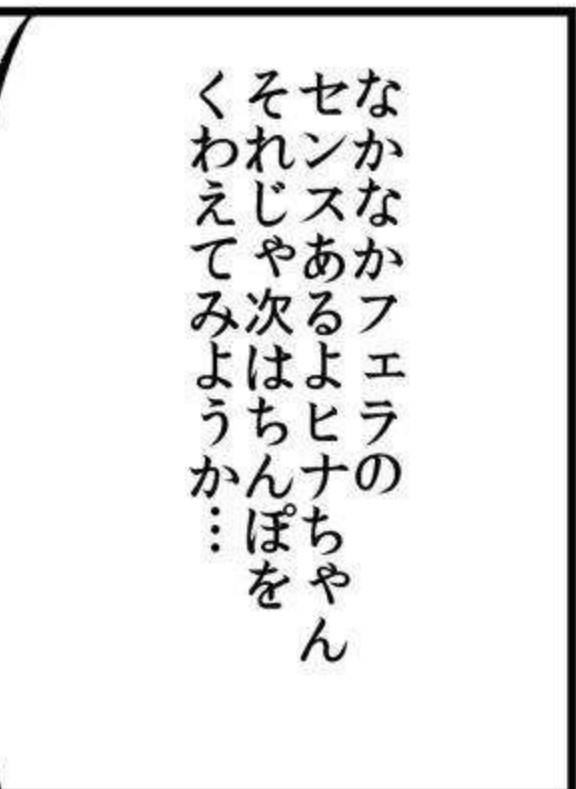 なかなかフェラの
センスあるよヒナちゃん
それじゃ次はちんぽを
くわえてみようか…